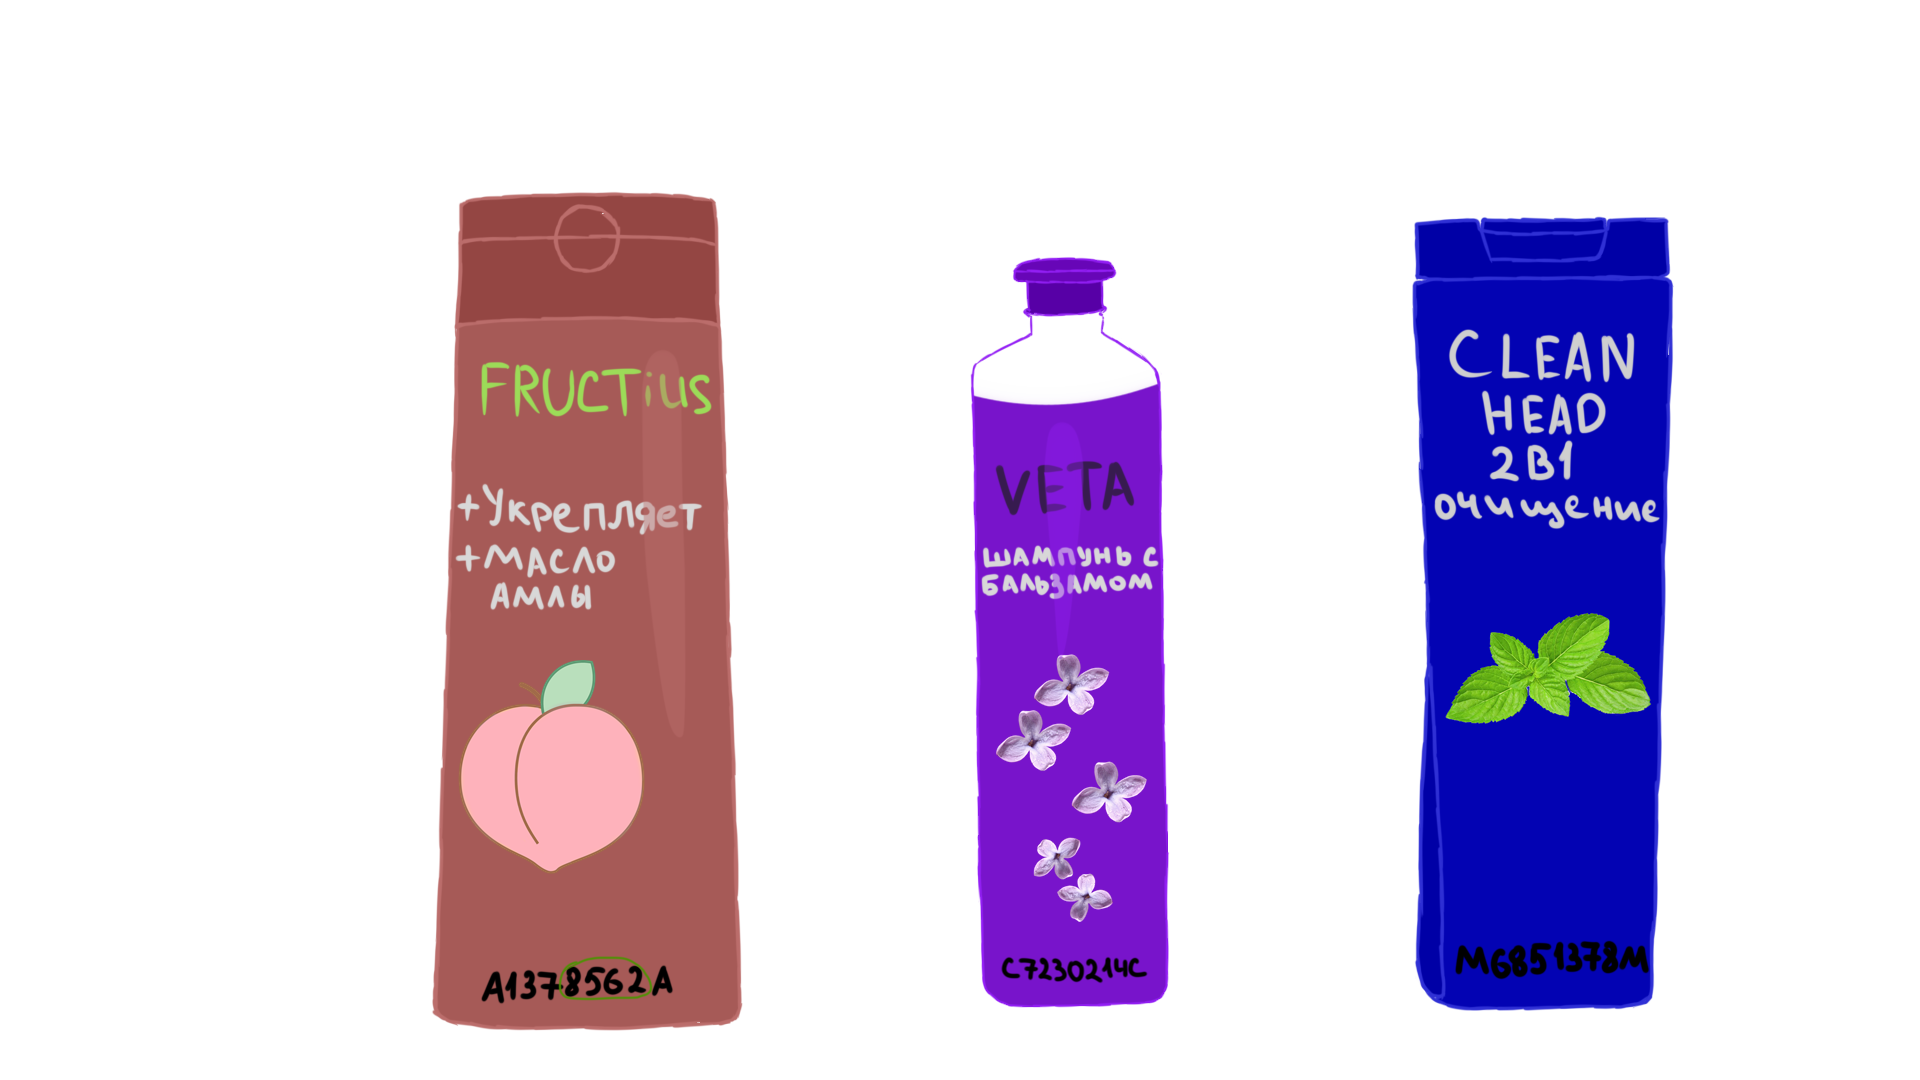 FRUCTiUS
+Укрепляет
+МАСЛО
АМЛЫ
A1378562A
VETA
ШАМПУНЬ С
БАЛЬЗАМОМ
C7230214C
CLEAN
HEAD
2В1
ОЧИЩЕНИЕ
M6851378M